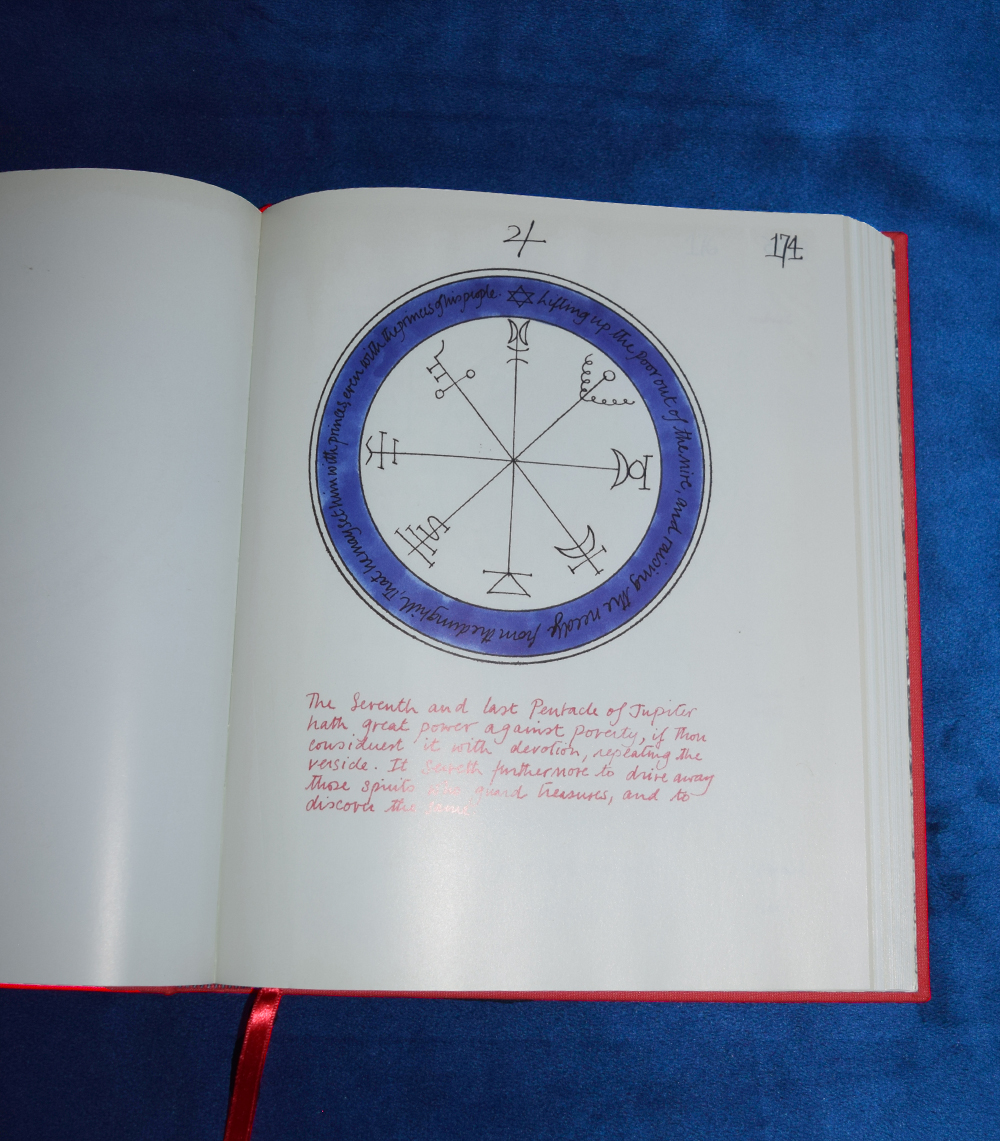 174
Lifting up the poor out of the mire, and raising the needy from the dunghill, that he may set him with princes, even with the princes of his people.
The Seventh and last Pentacle of Jupiter
hath great power against poverty, if thou
considerest it with devotion, repeating the
versicle. It serveth furthermore to drive away
those spirits who guard treasures, and to
discover the same